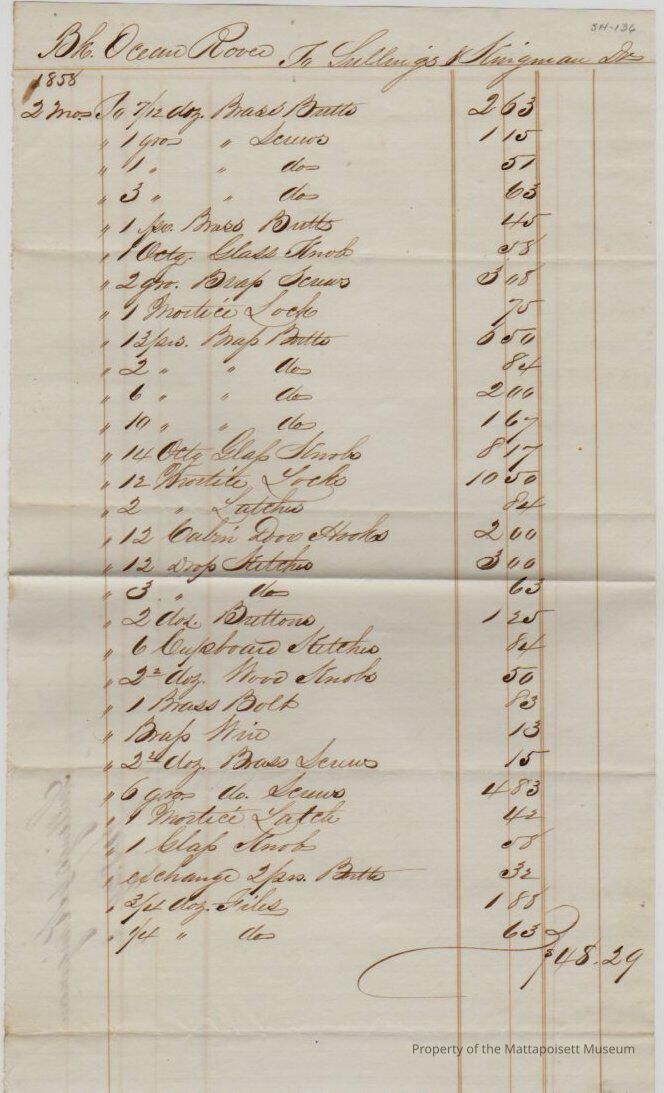 SH-136
Bk. Ocean Rover To Sullings & Kingman Dr
1858
2 mos To 7/12 doz. Brass Butts 2 63
" 1 gro " Screws 1 15
" 1 " " do 51
" 3 " " do 63
" 1 pr. Brass Butts 45
" 1 Octg. Glass Knob 58
" 2 gro. Brass Screws 3 08
" 1 Mortice Lock 75
" 13 prs. Brass Butts 6 50
" 2 " " do 84
" 6 " " do 2 00
" 10 " " do 1 67
" 14 Octg Glass Knob 8 17
" 12 Mortice Locks 10 50
" 2 " Latches 84
" 12 Cabin Door Hooks 2 00
" 12 Drop Ketches 3 00
" 3 " do 63
" 2 doz. Buttons 1 25
" 6 Cupboard Ketches 84
" 2 doz. Wood Knobs 50
" 1 Brass Bolt 83
" Brass Wire 13
" 2 doz. Brass Screws 15
" 6 gro do. Screws 4 83
" 1 Mortice Latch 42
" 1 Glass Knob 58
" exchange 2 prs. Butts 32
" 3/4 doz. Files 1 88
" 1/4 " do 63
$48.29
Property of the Mattapoisett Museum